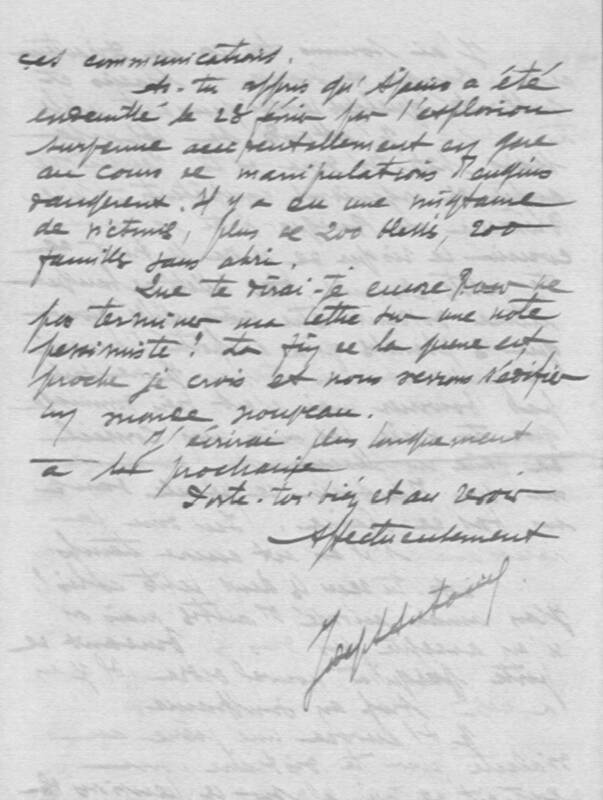 ces communications.
As-tu appris qu'Apein a été
endeuillé le 28 févier par l'explosion
survenue accidentellement en gare
au cours de manipulations d'engins
dangereux. Il y a eu une vingtaine
de victimes, plus de 200 blessés, 200
familles sans abri.
Que te dirai-je encore pour ne
pas terminer ma lettre sur une note
pessimiste! La fin de la guerre est
proche je crois et nous verrons s'édifier
un monde nouveau.
J'écrirai plus longuement
à la prochaine
Porte-toi bien et au revoir
Affectueusement
Joseph Antoine